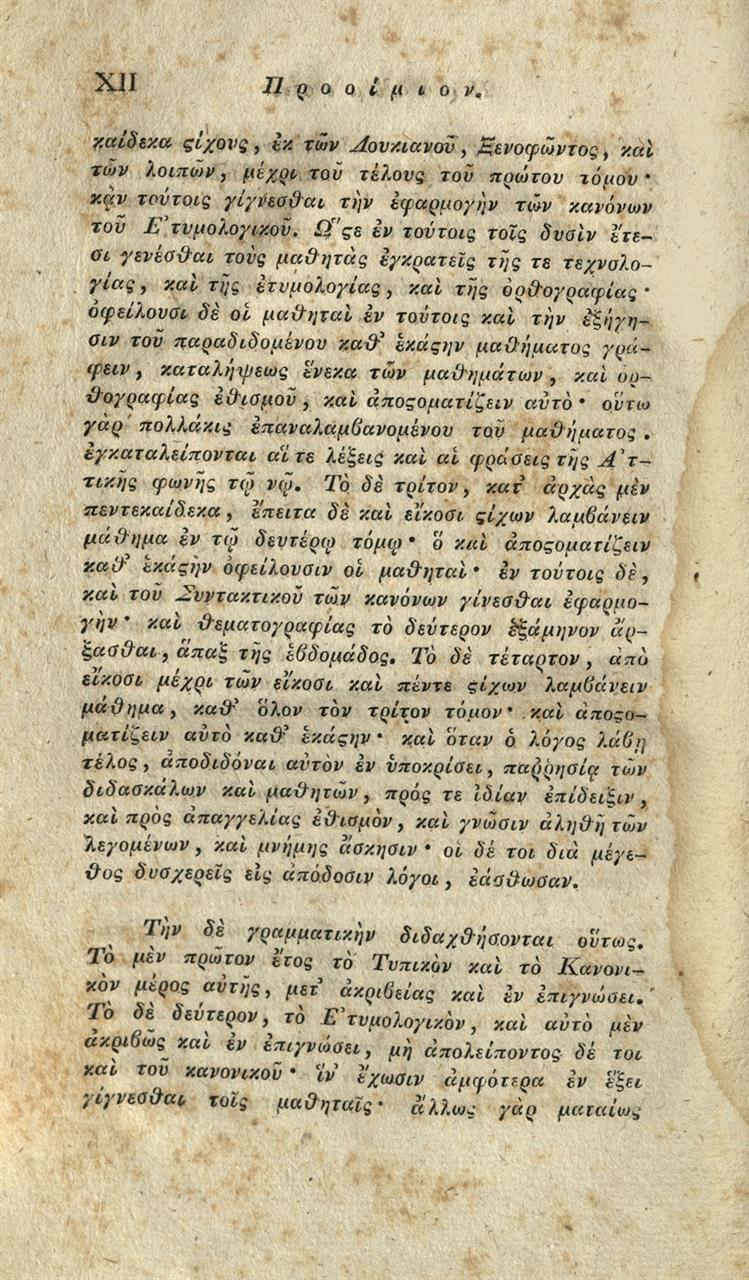 XII Προοίμιον.
καίδεκα ϛίχους, ἐκ τῶν Λουκιανοῦ, Ξενοφῶντος, καὶ
τῶν λοιπῶν, μέχρι τοῦ τέλους τοῦ πρώτου τόμου·
κᾀν τούτοις γίγνεσθαι τὴν ἐφαρμογὴν τῶν κανόνων
τοῦ Ἐτυμολογικοῦ. Ὥϛε ἐν τούτοις τοῖς δυσὶν ἔτε-
σι γενέσθαι τοὺς μαθητὰς ἐγκρατεῖς τῆς τε τεχνολο-
γίας, καὶ τῆς ἐτυμολογίας, καὶ τῆς ὀρθογραφίας·
ὀφείλουσι δὲ οἱ μαθηταὶ ἐν τούτοις καὶ τὴν ἐξήγη-
σιν τοῦ παραδιδομένου καθ' ἑκάϛην μαθήματος γρά-
φειν, καταλήψεως ἕνεκα τῶν μαθημάτων, καὶ ὀρ-
θογραφίας ἐθισμοῦ, καὶ ἀποϛοματίζειν αὐτὸ· οὕτω
γὰρ πολλάκις ἐπαναλαμβανομένου τοῦ μαθήματος.
ἐγκαταλείπονται αἵ τε λέξεις καὶ αἱ φράσεις τῆς Ἀτ-
τικῆς φωνῆς τῷ νῷ. Τὸ δὲ τρίτον, κατ' ἀρχὰς μὲν
πεντεκαίδεκα, ἔπειτα δὲ καὶ εἴκοσι ϛίχων λαμβάνειν
μάθημα ἐν τῷ δευτέρῳ τόμῳ· ὃ καὶ ἀποϛοματίζειν
καθ' ἑκάϛην ὀφείλουσιν οἱ μαθηταὶ· ἐν τούτοις δὲ,
καὶ τοῦ Συντακτικοῦ τῶν κανόνων γίνεσθαι ἐφαρμο-
γὴν· καὶ θεματογραφίας τὸ δεύτερον ἑξάμηνον ἄρ-
ξασθαι, ἅπαξ τῆς ἑβδομάδος. Τὸ δὲ τέταρτον, ἀπὸ
εἴκοσι μέχρι τῶν εἴκοσι καὶ πέντε ϛίχων λαμβάνειν
μάθημα, καθ' ὅλον τὸν τρίτον τόμον· καὶ ἀποϛο-
ματίζειν αὐτὸ καθ' ἑκάϛην· καὶ ὅταν ὁ λόγος λάβῃ
τέλος, ἀποδιδόναι αὐτὸν ἐν ὑποκρίσει, παῤῥησίᾳ τῶν
διδασκάλων καὶ μαθητῶν, πρός τε ἰδίαν ἐπίδειξιν,
καὶ πρὸς ἀπαγγελίας ἐθισμὸν, καὶ γνῶσιν ἀληθῆ τῶν
λεγομένων, καὶ μνήμης ἄσκησιν· οἱ δέ τοι διὰ μέγε-
θος δυσχερεῖς εἰς ἀπόδοσιν λόγοι, ἐάσθωσαν.
Τὴν δὲ γραμματικὴν διδαχθήσονται οὕτως.
Τὸ μὲν πρῶτον ἔτος τὸ Τυπικὸν καὶ τὸ Κανονι-
κὸν μέρος αὐτῆς, μετ' ἀκριβείας καὶ ἐν ἐπιγνώσει.
Τὸ δὲ δεύτερον, τὸ Ἐτυμολογικὸν, καὶ αὐτὸ μὲν
ἀκριβῶς καὶ ἐν ἐπιγνώσει, μὴ ἀπολείποντος δέ τοι
καὶ τοῦ κανονικοῦ· ἵν' ἔχωσιν ἀμφότερα ἐν ἕξει
γίγνεσθαι τοῖς μαθηταῖς· ἄλλως γὰρ ματαίως